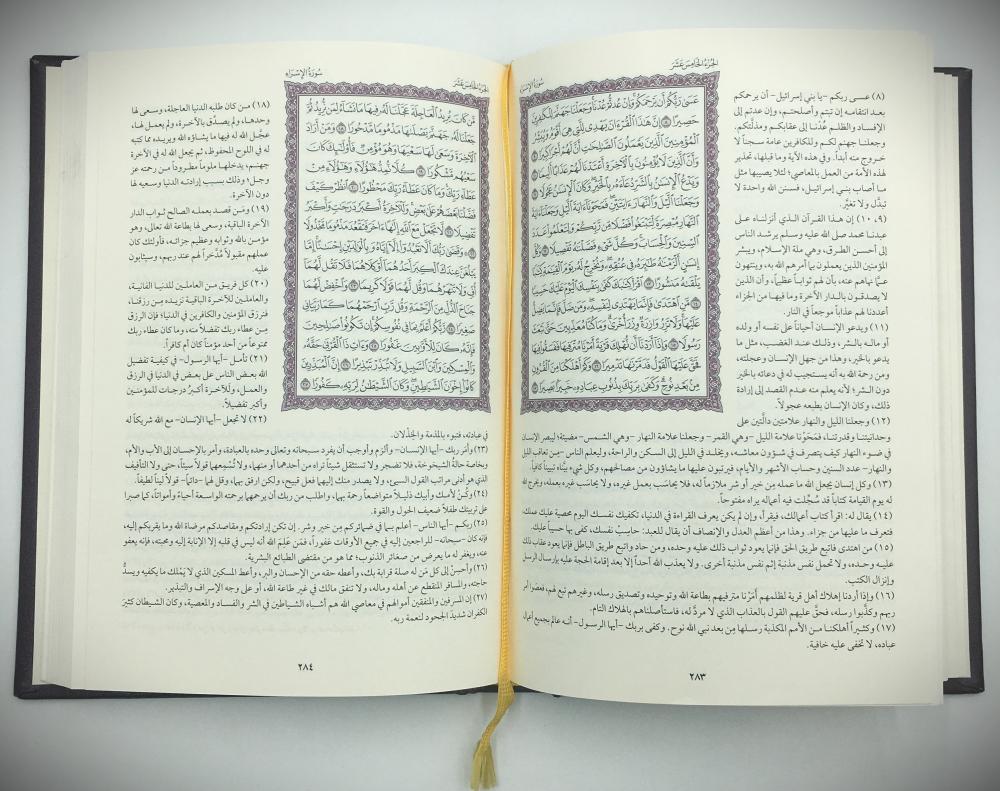 الجزء الخامس عشر
سورة الإسراء
عَسَىٰ رَبُّكُمْ أَن يَرْحَمَكُمْ وَإِنْ عُدتُّمْ عُدْنَا وَجَعَلْنَا جَهَنَّمَ لِلْكَافِرِينَ
حَصِيرًا ٨ إِنَّ هَٰذَا الْقُرْآنَ يَهْدِي لِلَّتِي هِيَ أَقْوَمُ وَيُبَشِّرُ
الْمُؤْمِنِينَ الَّذِينَ يَعْمَلُونَ الصَّالِحَاتِ أَنَّ لَهُمْ أَجْرًا كَبِيرًا ٩
وَأَنَّ الَّذِينَ لَا يُؤْمِنُونَ بِالْآخِرَةِ أَعْتَدْنَا لَهُمْ عَذَابًا أَلِيمًا ١٠
وَيَدْعُ الْإِنسَانُ بِالشَّرِّ دُعَاءَهُ بِالْخَيْرِ وَكَانَ الْإِنسَانُ عَجُولًا ١١
وَجَعَلْنَا اللَّيْلَ وَالنَّهَارَ آيَتَيْنِ فَمَحَوْنَا آيَةَ اللَّيْلِ وَجَعَلْنَا آيَةَ
النَّهَارِ مُبْصِرَةً لِّتَبْتَغُوا فَضْلًا مِّن رَّبِّكُمْ وَلِتَعْلَمُوا عَدَدَ
السِّنِينَ وَالْحِسَابَ وَكُلَّ شَيْءٍ فَصَّلْنَاهُ تَفْصِيلًا ١٢ وَكُلَّ
إِنسَانٍ أَلْزَمْنَاهُ طَائِرَهُ فِي عُنُقِهِ وَنُخْرِجُ لَهُ يَوْمَ الْقِيَامَةِ كِتَابًا
يَلْقَاهُ مَنشُورًا ١٣ اقْرَأْ كِتَابَكَ كَفَىٰ بِنَفْسِكَ الْيَوْمَ عَلَيْكَ حَسِيبًا
١٤ مَّنِ اهْتَدَىٰ فَإِنَّمَا يَهْتَدِي لِنَفْسِهِ وَمَن ضَلَّ فَإِنَّمَا يَضِلُّ
عَلَيْهَا وَلَا تَزِرُ وَازِرَةٌ وِزْرَ أُخْرَىٰ وَمَا كُنَّا مُعَذِّبِينَ حَتَّىٰ نَبْعَثَ
رَسُولًا ١٥ وَإِذَا أَرَدْنَا أَن نُّهْلِكَ قَرْيَةً أَمَرْنَا مُتْرَفِيهَا فَفَسَقُوا فِيهَا
فَحَقَّ عَلَيْهَا الْقَوْلُ فَدَمَّرْنَاهَا تَدْمِيرًا ١٦ وَكَمْ أَهْلَكْنَا مِنَ الْقُرُونِ
مِن بَعْدِ نُوحٍ وَكَفَىٰ بِرَبِّكَ بِذُنُوبِ عِبَادِهِ خَبِيرًا بَصِيرًا ١٧
(٨) عسى ربكم -يا بني إسرائيل- أن يرحمكم
بعد انتقامه إن تبتم وأصلحتم، وإن عدتم إلى
الإفساد والظلم عُدْنا إلى عقابكم ومذلَّتكم.
وجعلنا جهنم لكم وللكافرين عامة سجناً لا
خروج منه أبداً. وفي هذه الآية وما قبلها، تحذير
لهذه الأمة من العمل بالمعاصي؛ لئلا يصيبها مثل
ما أصاب بني إسرائيل، فسنن الله واحدة لا
تبدَّل ولا تغيَّر.
(٩، ١٠) إن هذا القرآن الذي أنزلناه على
عبدنا محمد صلى الله عليه وسلم يرشد الناس
إلى أحسن الطرق، وهي ملة الإسلام، ويبشر
المؤمنين الذين يعملون بما أمرهم الله به، وينتهون
عمَّا نهاهم عنه، بأن لهم ثواباً عظيماً، وأن الذين
لا يصدقون بالدار الآخرة وما فيها من الجزاء
أعددنا لهم عذاباً موجعاً في النار.
(١١) ويدعو الإنسان أحياناً على نفسه أو ولده
أو ماله بالشر، وذلك عند الغضب، مثل ما
يدعو بالخير، وهذا من جهل الإنسان وعجلته،
ومن رحمة الله به أنه يستجيب له في دعائه بالخير
دون الشر؛ لأنه يعلم منه عدم القصد إلى إرادة
ذلك، وكان الإنسان بطبعه عجولاً.
(١٢) وجعلنا الليل والنهار علامتين دالَّتين على
وحدانيتنا وقدرتنا، فمَحَوْنا علامة الليل -وهي القمر- وجعلنا علامة النهار -وهي الشمس- مضيئة؛ ليبصر الإنسان
في ضوء النهار كيف يتصرف في شؤون معاشه، ويخلد في الليل إلى السكن والراحة، وليعلم الناس -من تعاقب الليل
والنهار- عدد السنين وحساب الأشهر والأيام، فيرتبون عليها ما يشاؤون من مصالحهم، وكل شيء بيَّنَّاه تبييناً كافياً.
(١٣) وكل إنسان يجعل الله ما عمله مِن خير أو شر ملازماً له، فلا يحاسَب بعمل غيره، ولا يحاسَب غيره بعمله، ويخرج الله
له يوم القيامة كتاباً قد سُجِّلت فيه أعماله يراه مفتوحاً.
(١٤) يقال له: اقرأ كتاب أعمالك، فيقرأ، وإن لم يكن يعرف القراءة في الدنيا، تكفيك نفسك اليوم محصية عليك عملك
فتعرف ما عليها من جزاء. وهذا من أعظم العدل والإنصاف أن يقال للعبد: حاسِبْ نفسك، كفى بها حسيباً عليك.
(١٥) من اهتدى فاتبع طريق الحق فإنما يعود ثواب ذلك عليه وحده، ومن حاد واتبع طريق الباطل فإنما يعود عقاب ذلك
عليه وحده، ولا تحمل نفس مذنبة إثم نفس مذنبة أخرى. ولا يعذب الله أحداً إلا بعد إقامة الحجة عليه بإرسال الرسل
وإنزال الكتب.
(١٦) وإذا أردنا إهلاك أهل قرية لظلمهم أمَرْنا مترفيهم بطاعة الله وتوحيده وتصديق رسله، وغيرهم تبع لهم، فعصَوا أمر
ربهم وكذَّبوا رسله، فحقَّ عليهم القول بالعذاب الذي لا مردَّ له، فاستأصلناهم بالهلاك التام.
(١٧) وكثيراً أهلكنا من الأمم المكذبة رسلها مِن بعد نبي الله نوح. وكفى بربك -أيها الرسول- أنه عالم بجميع أعمال
عباده، لا تخفى عليه خافية.
٢٨٣
الجزء الخامس عشر
سورة الإسراء
مَّن كَانَ يُرِيدُ الْعَاجِلَةَ عَجَّلْنَا لَهُ فِيهَا مَا نَشَاءُ لِمَن نُّرِيدُ ثُمَّ
جَعَلْنَا لَهُ جَهَنَّمَ يَصْلَاهَا مَذْمُومًا مَّدْحُورًا ١٨ وَمَنْ أَرَادَ
الْآخِرَةَ وَسَعَىٰ لَهَا سَعْيَهَا وَهُوَ مُؤْمِنٌ فَأُولَٰئِكَ كَانَ
سَعْيُهُم مَّشْكُورًا ١٩ كُلًّا نُّمِدُّ هَٰؤُلَاءِ وَهَٰؤُلَاءِ مِنْ
عَطَاءِ رَبِّكَ وَمَا كَانَ عَطَاءُ رَبِّكَ مَحْظُورًا ٢٠ انظُرْ كَيْفَ
فَضَّلْنَا بَعْضَهُمْ عَلَىٰ بَعْضٍ وَلَلْآخِرَةُ أَكْبَرُ دَرَجَاتٍ وَأَكْبَرُ
تَفْضِيلًا ٢١ لَّا تَجْعَلْ مَعَ اللَّهِ إِلَٰهًا آخَرَ فَتَقْعُدَ مَذْمُومًا مَّخْذُولًا
٢٢ وَقَضَىٰ رَبُّكَ أَلَّا تَعْبُدُوا إِلَّا إِيَّاهُ وَبِالْوَالِدَيْنِ إِحْسَانًا إِمَّا
يَبْلُغَنَّ عِندَكَ الْكِبَرَ أَحَدُهُمَا أَوْ كِلَاهُمَا فَلَا تَقُل لَّهُمَا
أُفٍّ وَلَا تَنْهَرْهُمَا وَقُل لَّهُمَا قَوْلًا كَرِيمًا ٢٣ وَاخْفِضْ لَهُمَا
جَنَاحَ الذُّلِّ مِنَ الرَّحْمَةِ وَقُل رَّبِّ ارْحَمْهُمَا كَمَا رَبَّيَانِي
صَغِيرًا ٢٤ رَّبُّكُمْ أَعْلَمُ بِمَا فِي نُفُوسِكُمْ إِن تَكُونُوا صَالِحِينَ
فَإِنَّهُ كَانَ لِلْأَوَّابِينَ غَفُورًا ٢٥ وَآتِ ذَا الْقُرْبَىٰ حَقَّهُ
وَالْمِسْكِينَ وَابْنَ السَّبِيلِ وَلَا تُبَذِّرْ تَبْذِيرًا ٢٦ إِنَّ الْمُبَذِّرِينَ
كَانُوا إِخْوَانَ الشَّيَاطِينِ وَكَانَ الشَّيْطَانُ لِرَبِّهِ كَفُورًا ٢٧
(١٨) مـن كان طلبه الدنيا العاجلة، وسعى لها
وحدها، ولم يصدِّق بالآخرة، ولم يعمل لها،
عجَّل الله له فيها ما يشاؤه الله ويريده مما كتبه
له في اللوح المحفوظ، ثم يجعل الله له في الآخرة
جهنم، يدخلها ملوماً مطروداً من رحمته عز
وجل؛ وذلك بسبب إرادته الدنيا وسعيه لها
دون الآخرة.
(١٩) ومَن قصد بعمله الصالح ثواب الدار
الآخرة الباقية، وسعى لها بطاعة الله تعالى، وهو
مؤمن بالله وثوابه وعظيم جزائه، فأولئك كان
عملهم مقبولاً مُدَّخراً لهم عند ربهم، وسيثابون
عليه.
(٢٠) كل فريق من العاملين للدنيا الفانية،
والعاملين للآخرة الباقية نزيده مِن رزقنا،
فنرزق المؤمنين والكافرين في الدنيا؛ فإن الرزق
مِن عطاء ربك تفضلاً منه، وما كان عطاء ربك
ممنوعاً من أحد مؤمناً كان أم كافراً.
(٢١) تأمل -أيها الرسول- في كيفية تفضيل
الله بعض الناس على بعض في الدنيا في الرزق
والعمل، ولَلآخرة أكبرُ درجات للمؤمنين
وأكبر تفضيلاً.
(٢٢) لا تجعل -أيها الإنسان- مع الله شريكاً له
في عبادته، فتبوء بالمذمة والخِذْلان.
(٢٣) وأمَر ربك -أيها الإنسان- وألزم وأوجب أن يفرد سبحانه وتعالى وحده بالعبادة، وأمر بالإحسان إلى الأب والأم،
وبخاصة حالةُ الشيخوخة، فلا تضجر ولا تستثقل شيئاً تراه من أحدهما أو منهما، ولا تُسْمِعهما قولاً سيئاً، حتى ولا التأفيف
الذي هو أدنى مراتب القول السيئ، ولا يصدر منك إليهما فعل قبيح، ولكن ارفق بهما، وقل لهما -دائماً- قولاً ليناً لطيفاً.
(٢٤) وكُنْ لأمك وأبيك ذليلاً متواضعاً رحمة بهما، واطلب من ربك أن يرحمهما برحمته الواسعة أحياءً وأمواتاً، كما صبرا
على تربيتك طفلاً ضعيف الحول والقوة.
(٢٥) ربكم -أيها الناس- أعلم بما في ضمائركم من خير وشر. إن تكن إرادتكم ومقاصدكم مرضاة الله وما يقربكم إليه،
فإنه كان -سبحانه- للراجعين إليه في جميع الأوقات غفوراً، فمَن عَلِمَ الله أنه ليس في قلبه إلا الإنابة إليه ومحبته، فإنه يعفو
عنه، ويغفر له ما يعرض من صغائر الذنوب؛ مما هو من مقتضى الطبائع البشرية.
(٢٦) وأحسِنْ إلى كل مَن له صلة قرابة بك، وأعطه حقه من الإحسان والبر، وأعط المسكين الذي لا يَمْلك ما يكفيه ويسدُّ
حاجته، والمسافر المنقطع عن أهله وماله، ولا تنفق مالك في غير طاعة الله، أو على وجه الإسراف والتبذير.
(٢٧) إن المسرفين والمنفقين أموالهم في معاصي الله هم أشباه الشياطين في الشر والفساد والمعصية، وكان الشيطان كثيرَ
الكفران شديدَ الجحود لنعمة ربه.
٢٨٤